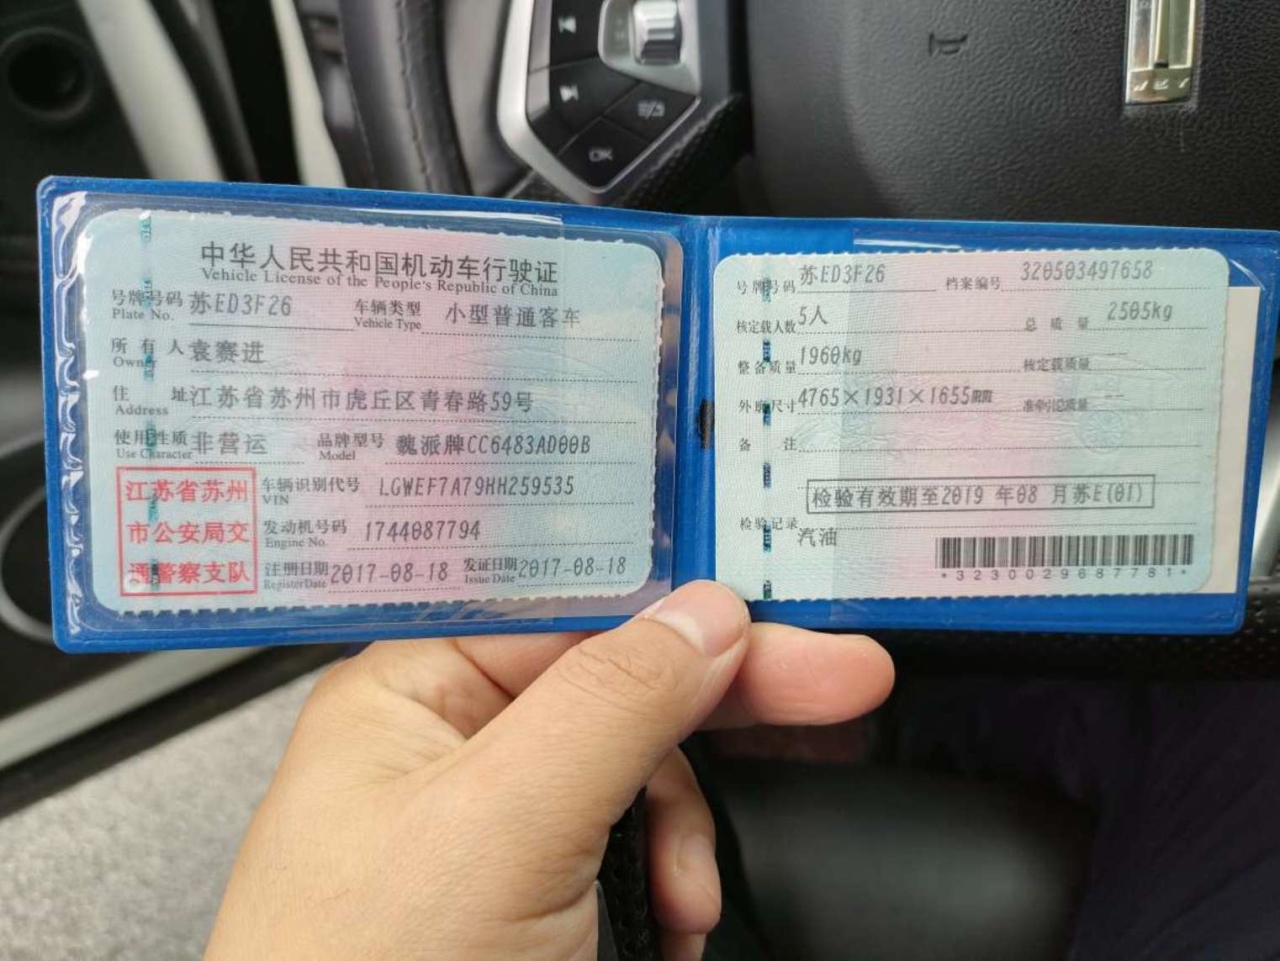 OK
中华人民共和国机动车行驶证
Vehicle License of the People's Republic of China
号牌号码 苏ED3F26 车辆类型 小型普通客车
Plate No. Vehicle Type
所有人 袁赛进
Owner
住址 江苏省苏州市虎丘区青春路59号
Address
使用性质 非营运 品牌型号 魏派牌CC6483AD00B
Use Character Model
江苏省苏州
市公安局交
通警察支队
车辆识别代号 LGWEF7A79HH259535
VIN
发动机号码 1744087794
Engine No.
注册日期 2017-08-18 发证日期 2017-08-18
Register Date Issue Date
号牌号码 苏ED3F26 档案编号 320503497658
核定载人数 5人 总质量 2505kg
整备质量 1960kg 核定载质量 --
外廓尺寸 4765×1931×1655mm 准牵引总质量 --
备注
检验有效期至2019 年08 月苏E(01)
检验记录
汽油
*3230029687781*